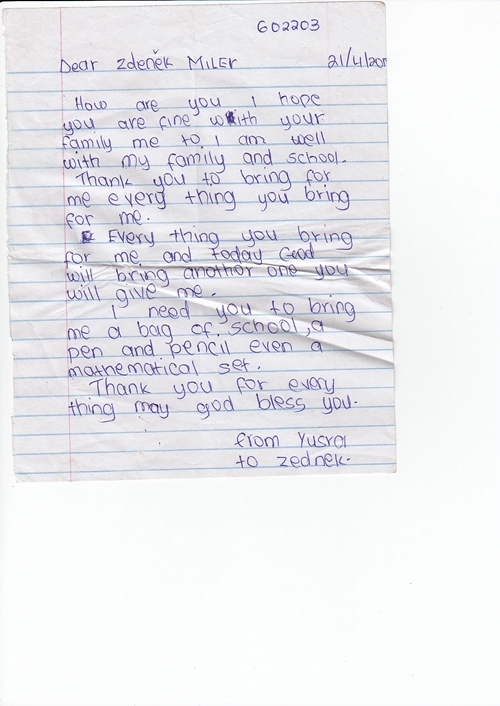 602203
Dear Zdeněk MILER 21/4/201
How are you I hope
you are fine with your
family me to I am well
with my family and school.
Thank you to bring for
me every thing you bring
for me.
Every thing you bring
for me and today God
will bring another one you
will give me.
I need you to bring
me a bag of school, a
pen and pencil even a
mathematical set.
Thank you for every
thing may god bless you.
from Yusra
to zednek.